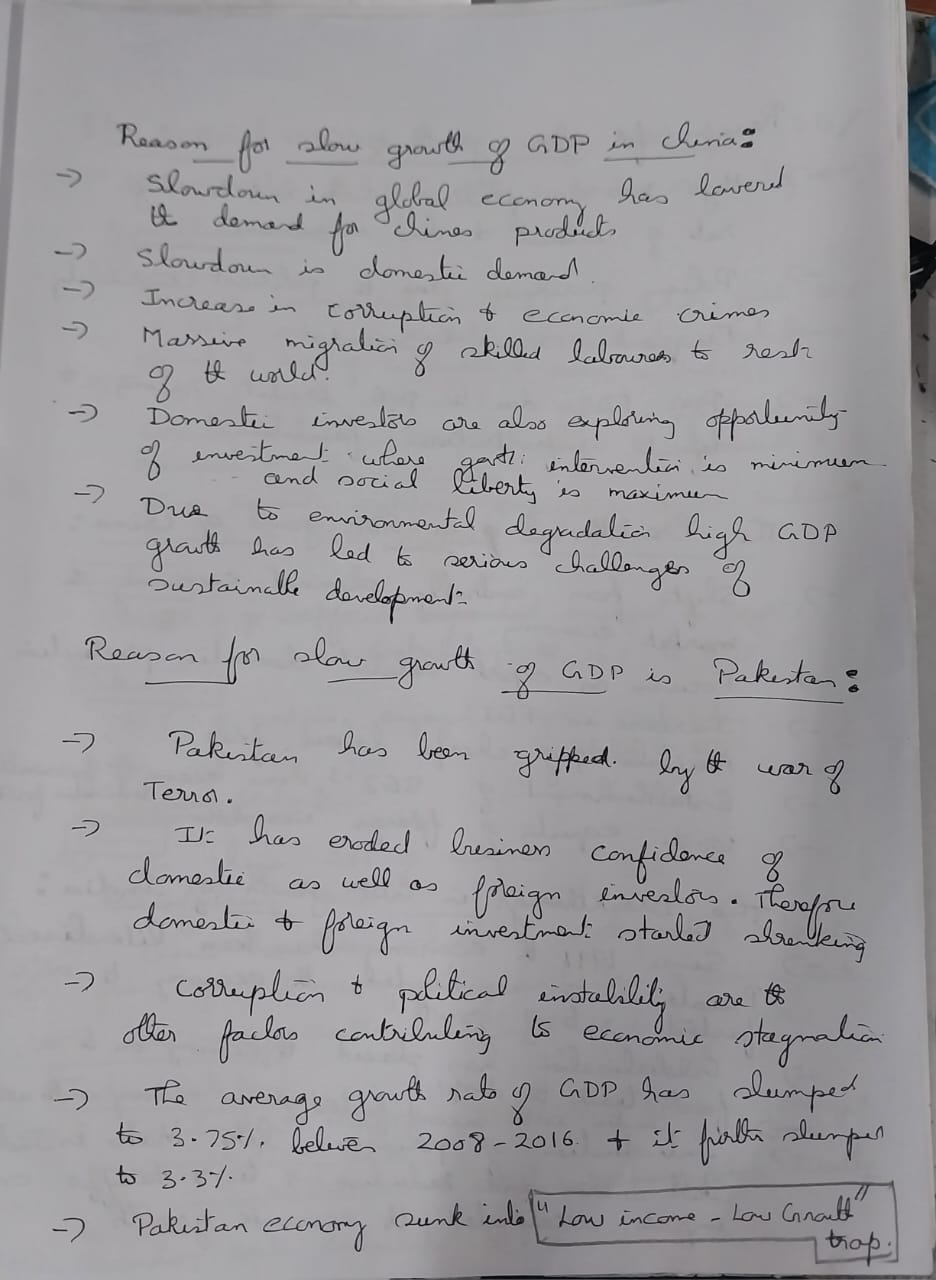 Reason for slow growth of GDP in China:
→ Slowdown in global economy has lowered
the demand for chines products
→ Slowdown in domestic demand.
→ Increase in corruption & economic crimes
→ Massive migration of skilled labourers to rest
of the world.
→ Domestic investors are also exploring opportunity
of investment where govt: intervention is minimum
and social liberty is maximum
→ Due to environmental degradation high GDP
growth has led to serious challenges of
sustainable development.
Reason for slow growth of GDP in Pakistan:
→ Pakistan has been gripped. by the war of
Terror.
→ It has eroded business confidence of
domestic as well as foreign investors. Therefore
domestic & foreign investment started shrinking
→ Corruption & political instability are the
other factors contributing to economic stagnation
→ The average growth rate of GDP has slumped
to 3.75%. between 2008-2016. & it further slumped
to 3.3%.
→ Pakistan economy sunk into "Low income - Low Growth"
trap.